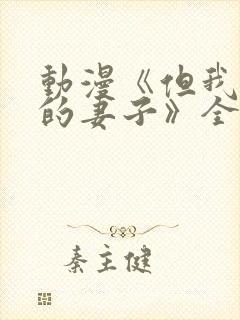 動漫《但我
的妻子》全
秦主健